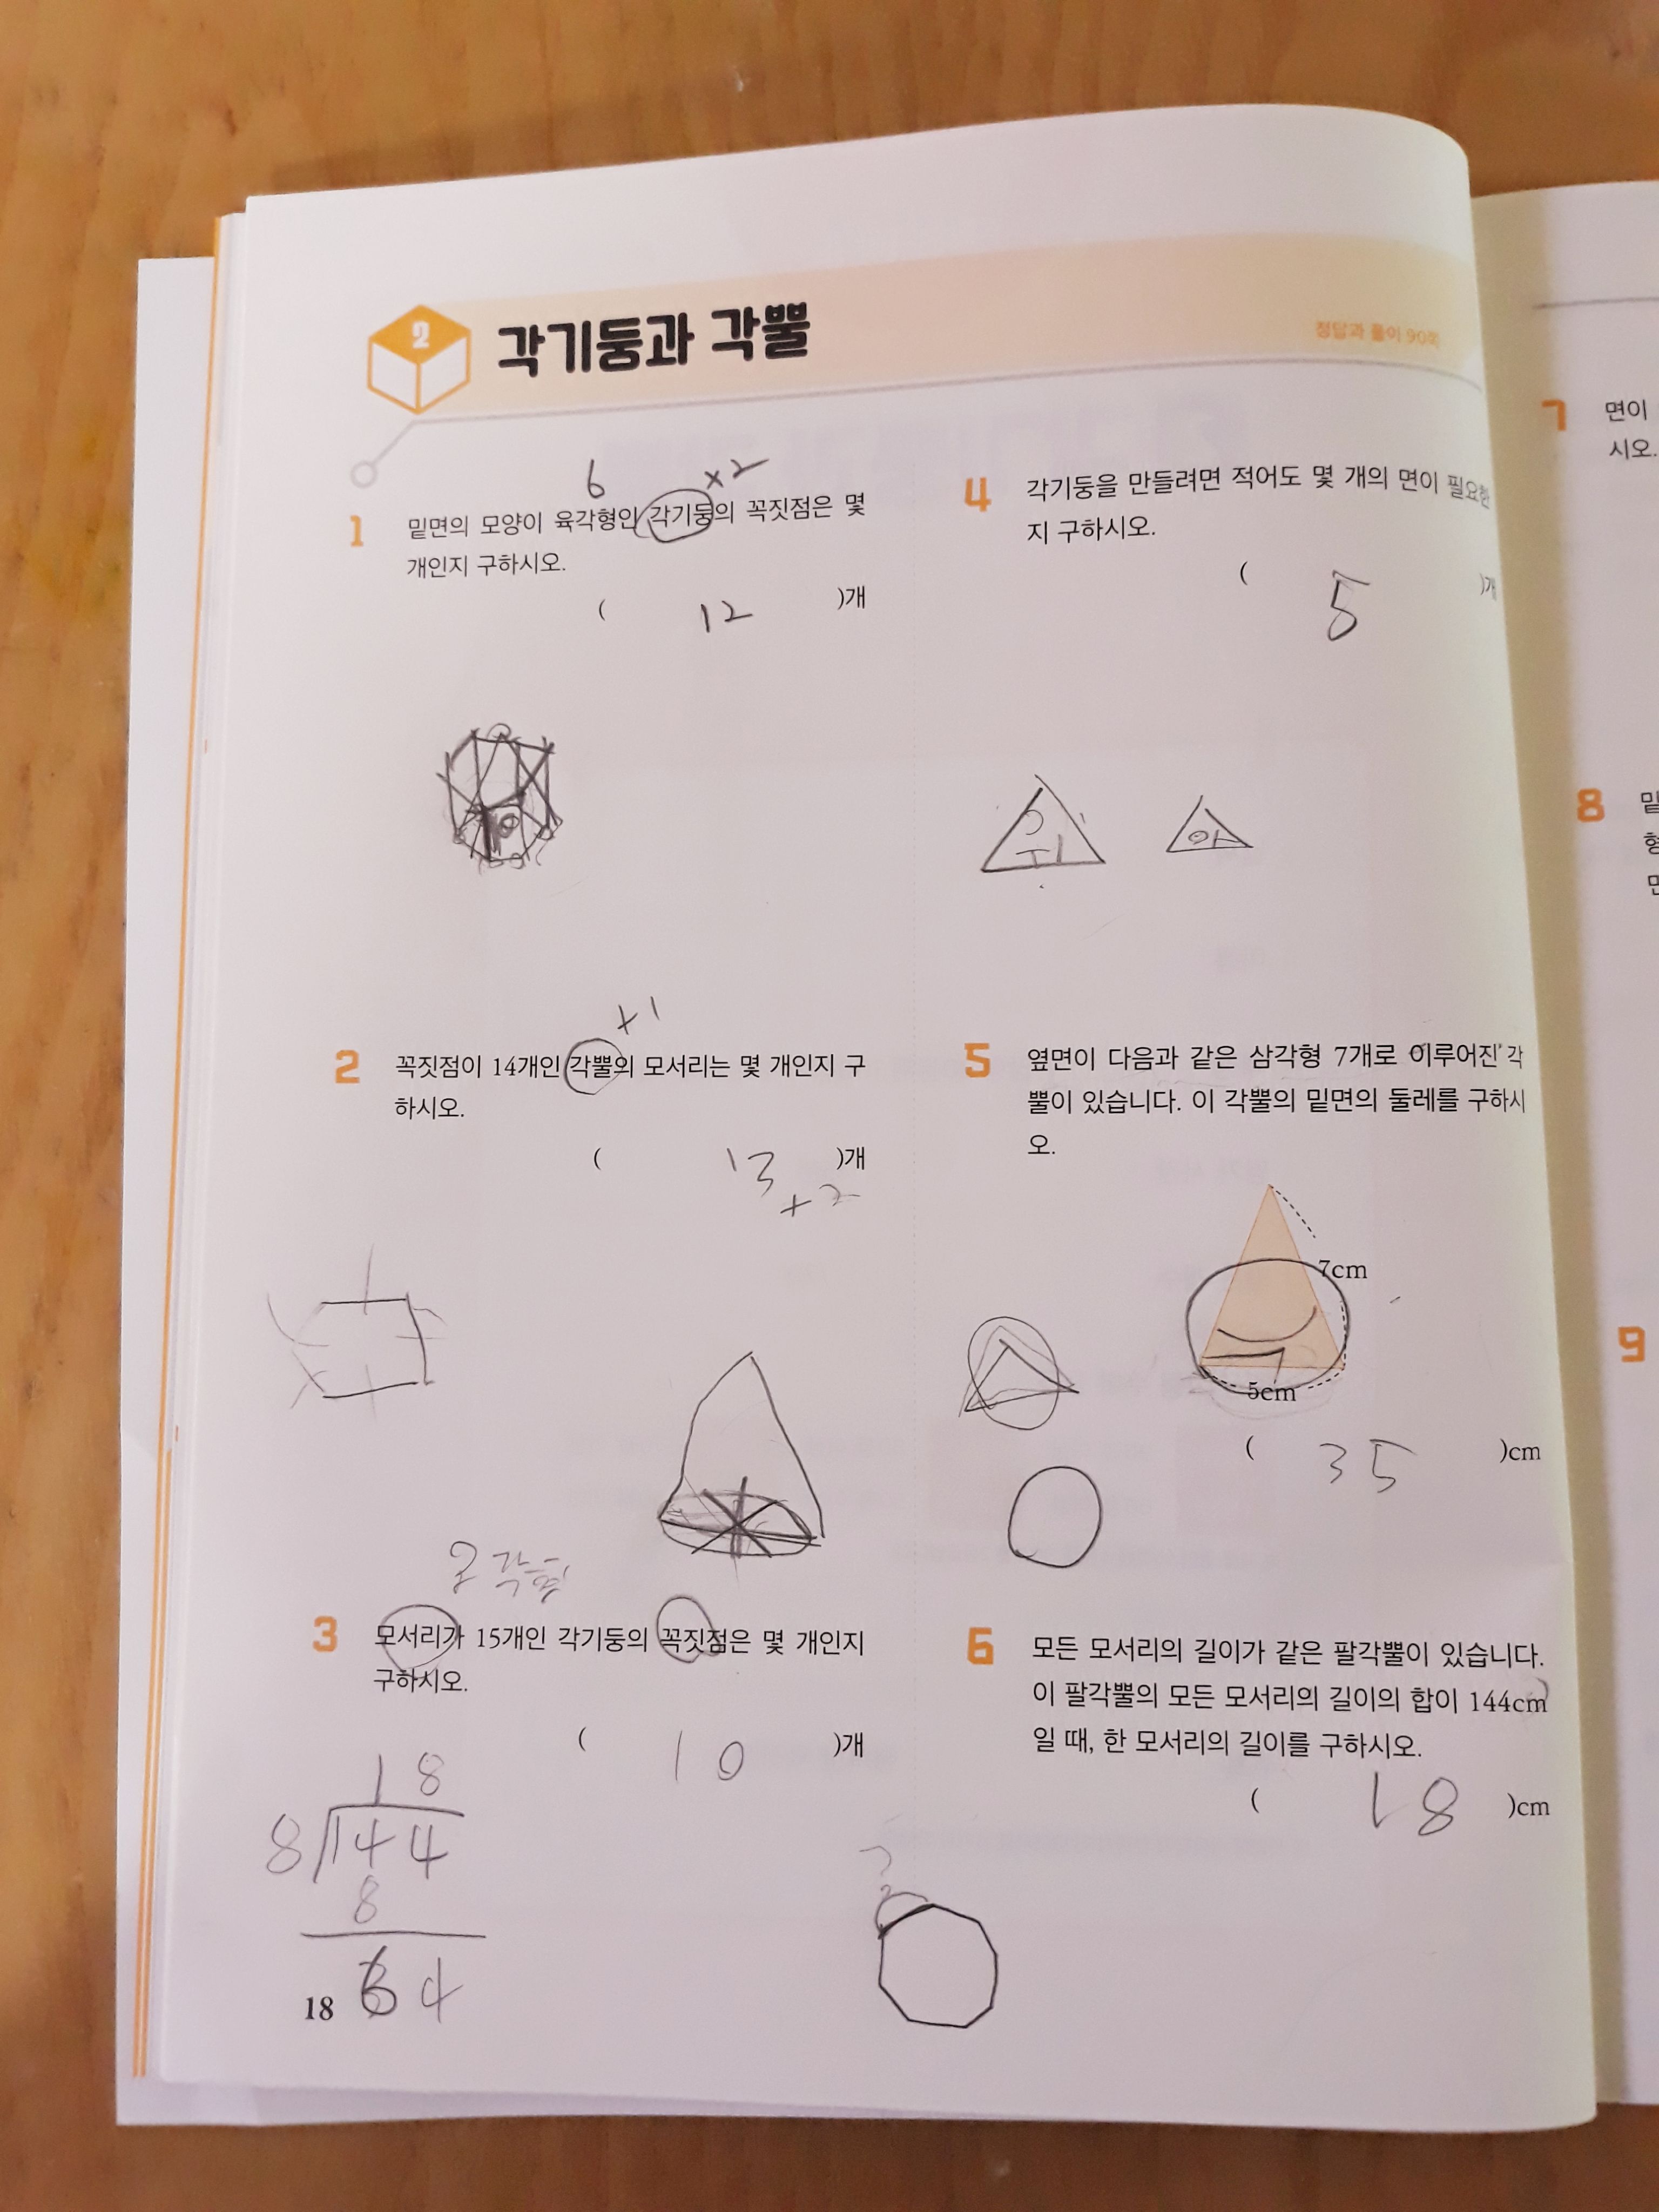 2
각기둥과 각뿔
정답과 풀이 90쪽
6
×2
1 밑면의 모양이 육각형인 각기둥의 꼭짓점은 몇
개인지 구하시오.
( 12 )개
+1
2 꼭짓점이 14개인 각뿔의 모서리는 몇 개인지 구
하시오.
( 13 )개
+2
각뿔
3 모서리가 15개인 각기둥의 꼭짓점은 몇 개인지
구하시오.
( 10 )개
18
8 144
8
64
18
4 각기둥을 만들려면 적어도 몇 개의 면이 필요한
지 구하시오.
( 5 )개
위 아
5 옆면이 다음과 같은 삼각형 7개로 이루어진 각
뿔이 있습니다. 이 각뿔의 밑면의 둘레를 구하시
오.
7cm
5cm
( 35 )cm
6 모든 모서리의 길이가 같은 팔각뿔이 있습니다.
이 팔각뿔의 모든 모서리의 길이의 합이 144cm
일 때, 한 모서리의 길이를 구하시오.
( 18 )cm
7 면이
시오.
8
9